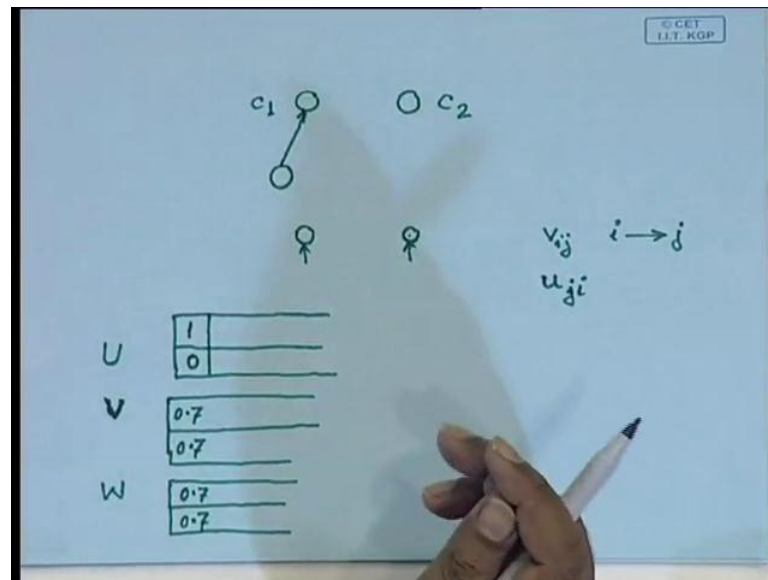 © CET
I.I.T. KGP
C1 C2
vij i → j
uji
U 1
0
V 0.7
0.7
W 0.7
0.7